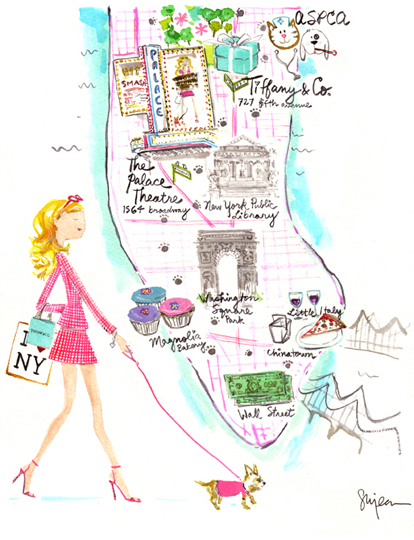 ASPCA
Tiffany & Co.
727 fifth avenue
PALACE
SMASH
The
Palace
Theatre
1564 broadway
New York Public
Library
Washington
Square
Park
Little Italy
Magnolia
Bakery
Chinatown
Wall Street
I
NY